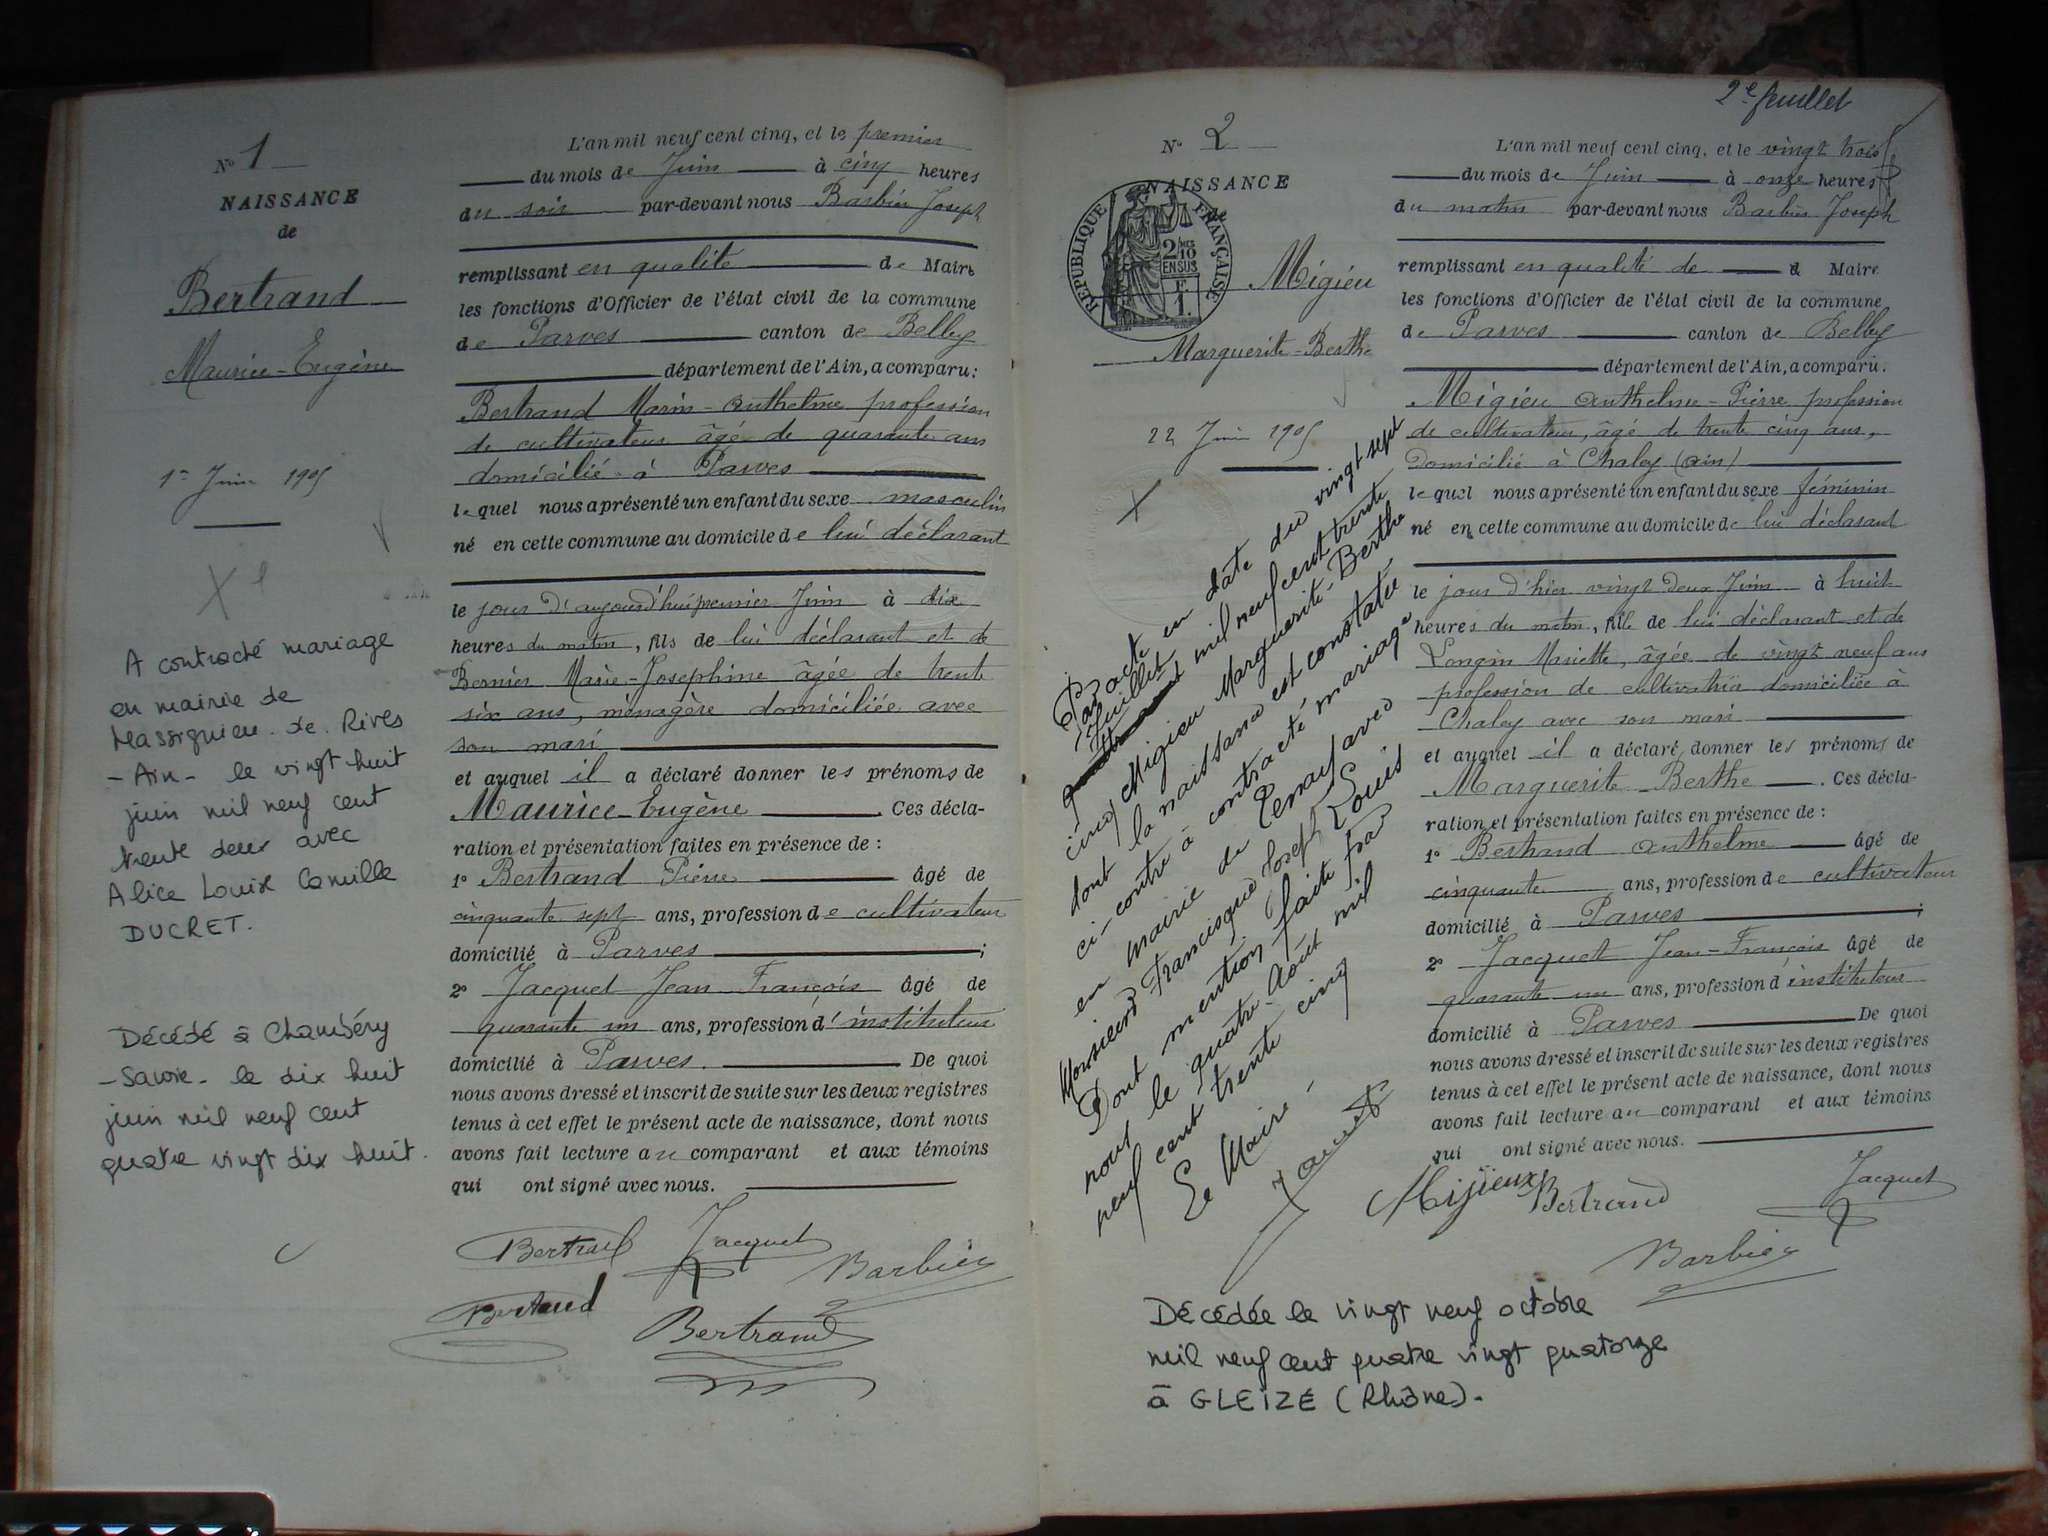 No 1
NAISSANCE
de
Bertrand
Maurice-Eugène
1er Juin 1905
A contracté mariage
en mairie de
Massignieu. de. Rives
-Ain- le vingt huit
juin mil neuf cent
trente deux avec
Alice Louise Camille
DUCRET.
Décédé à Chambéry
-Savoie- le dix huit
juin mil neuf cent
quatre vingt dix huit.
L'an mil neuf cent cinq, et le premier
du mois de Juin à cinq heures
du soir par-devant nous Barbier Joseph
remplissant en qualité de Maire
les fonctions d'Officier de l'état civil de la commune
de Parves canton de Belley
département de l'Ain, a comparu:
Bertrand Marin-Anthelme profession
de cultivateur âgé de quarante ans
domicilié à Parves
lequel nous a présenté un enfant du sexe masculin
né en cette commune au domicile de lui déclarant
le jour d'aujourd'hui premier Juin à dix
heures du matin, fils de lui déclarant et de
Bernier Marie-Josephine âgée de trente
six ans, ménagère domiciliée avec
son mari
et auquel il a déclaré donner les prénoms de
Maurice-Eugène. Ces décla-
ration et présentation faites en présence de :
1o Bertrand Pierre âgé de
cinquante sept ans, profession de cultivateur
domicilié à Parves ;
2o Jacquet Jean François âgé de
quarante un ans, profession d'instituteur
domicilié à Parves. De quoi
nous avons dressé et inscrit de suite sur les deux registres
tenus à cet effet le présent acte de naissance, dont nous
avons fait lecture au comparant et aux témoins
qui ont signé avec nous.
Bertrand Jacquet Barbier
Bertrand Bertrand
2e feuillet
No 2
NAISSANCE
de
REPUBLIQUE FRANÇAISE
2/10
EN SUS
1F.
Migieu
Marguerite-Berthe
22 Juin 1905
Par acte en date du vingt sept
Juillet mil neuf cent trente
cinq Migieu Marguerite-Berthe
dont la naissance est constatée
ci-contre à contracté mariage
en mairie de avec
Monsieur Francisque Joseph Louis
Dont mention faite par
nous le quatre Août mil
neuf cent trente cinq
Le Maire,
L'an mil neuf cent cinq, et le vingt trois
du mois de Juin à onze heures
du matin par-devant nous Barbier Joseph
remplissant en qualité de d Maire
les fonctions d'Officier de l'état civil de la commune
de Parves canton de Belley
département de l'Ain, a comparu:
Migieu Anthelme-Pierre profession
de cultivateur, âgé de trente cinq ans,
Domicilié à Chaley (Ain)
lequel nous a présenté un enfant du sexe féminin
né en cette commune au domicile de lui déclarant
le jour d'hier vingt deux Juin à huit
heures du matin, fille de lui déclarant et de
Longin Mariette, âgée de vingt neuf ans
profession de cultivatrice domiciliée à
Chaley avec son mari
et auquel il a déclaré donner les prénoms de
Marguerite Berthe. Ces décla-
ration et présentation faites en présence de :
1o Bertrand Anthelme âgé de
cinquante ans, profession de cultivateur
domicilié à Parves ;
2o Jacquet Jean-François âgé de
quarante un ans, profession d'instituteur
domicilié à Parves De quoi
nous avons dressé et inscrit de suite sur les deux registres
tenus à cet effet le présent acte de naissance, dont nous
avons fait lecture au comparant et aux témoins
qui ont signé avec nous.
Mijieux Bertrand Jacquet
Barbier
Décédée le vingt neuf octobre
mil neuf cent quatre vingt quatorze
à GLEIZE (Rhône).